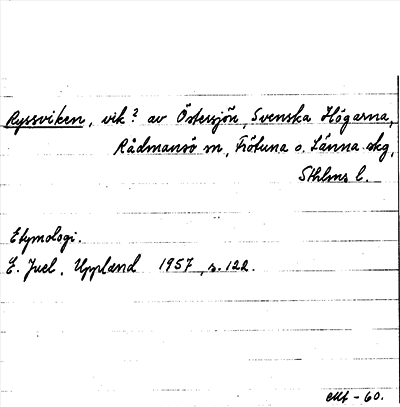 Ryssviken, vik? av Östersjön, Svenska Högarna,
Rådmansö sn, Frötuna o. Länna skg,
Sthlms l.
Etymologi.
E. Juel, Uppland 1957, s. 122.
EMf - 60.